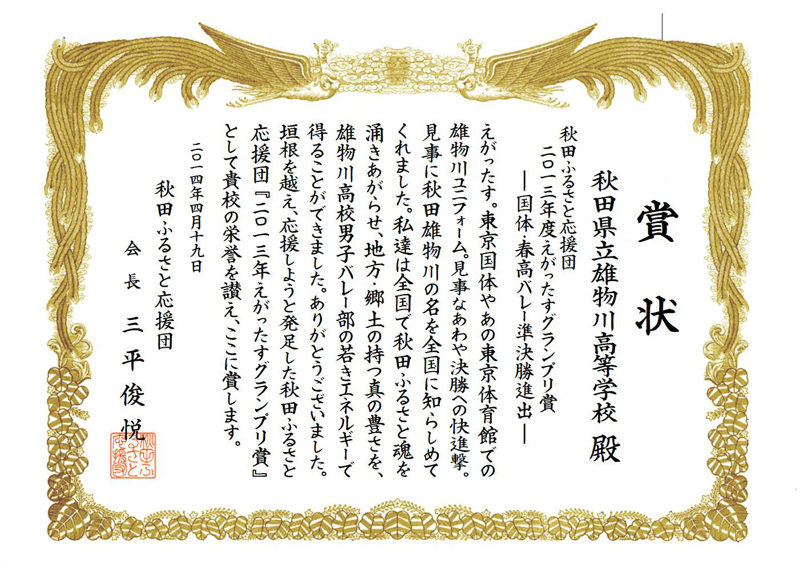 賞状
秋田県立雄物川高等学校 殿
秋田ふるさと応援団
二〇一三年度・えがったすグランプリ賞
―国体・春高バレー準決勝進出―
えがったす。東京国体やあの東京体育館での
雄物川ユニフォーム。見事なあわや決勝への快進撃。
見事に秋田雄物川の名を全国に知らしめて
くれました。私達は全国で秋田ふるさと魂を
涌きあがらせ、地方・郷土の持つ真の豊さを、
雄物川高校男子バレー部の若きエネルギーで
得ることができました。ありがとうございました。
垣根を越え、応援しようと発足した秋田ふるさと
応援団『二〇一三年えがったすグランプリ賞』
として貴校の栄誉を讃え、ここに賞します。
二〇一四年四月十九日
秋田ふるさと応援団
会長 三平俊悦
秋田ふ
るさと
応援団